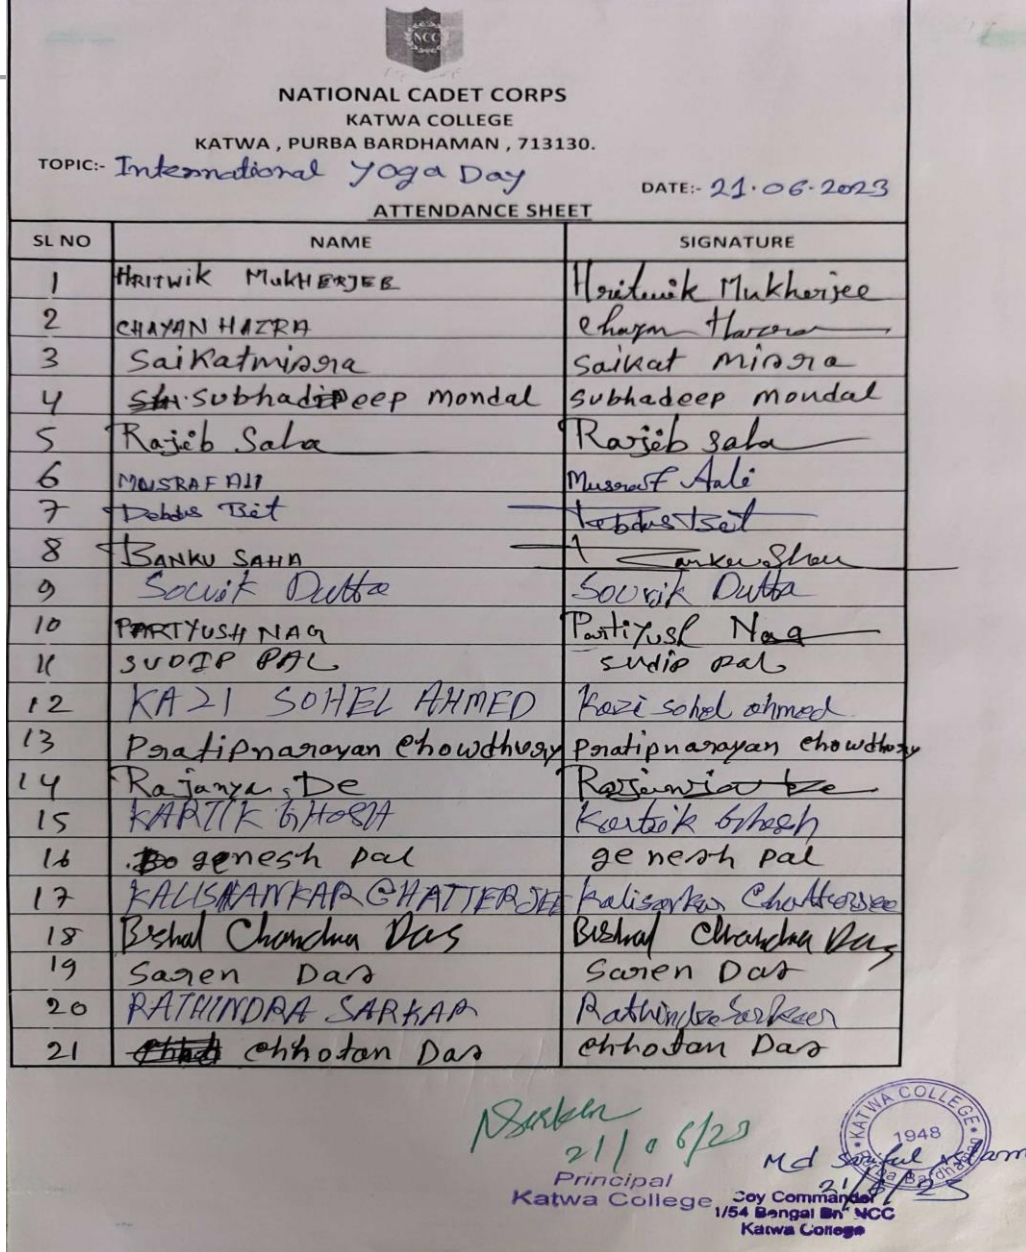 NCC
NATIONAL CADET CORPS
KATWA COLLEGE
KATWA , PURBA BARDHAMAN , 713130.
TOPIC:- International Yoga Day
DATE:- 21.06.2023
ATTENDANCE SHEET
SL NO NAME SIGNATURE
1 HRITWIK MUKHERJEE Hritwik Mukherjee
2 CHAYAN HAZRA Chayan Hazra
3 Saikat misra saikat misra
4 Subhadeep mondal subhadeep mondal
5 Rajib Saha Rajib saha
6 MUSRAF ALI Musraf Aali
7 Debdas Bit Debdas Bit
8 BANKU SAHA
9 Souvik Dutta Souvik Dutta
10 PARTYUSH NAG Partiyush Nag
11 SUDIP PAL sudip pal
12 KAZI SOHEL AHMED Kazi sohel ahmed
13 Pratipnarayan Chowdhury pratipnarayan chowdhury
14 Rajanya De
15 KARTIK GHOSH Kartik Ghosh
16 genesh pal genesh pal
17 KALISHANKAR CHATTERJEE Kalisankar Chatterjee
18 Bishal Chandra Das Bishal Chandra Das
19 Saren Das Saren Das
20 RATHINDRA SARKAR Rathindra Sarkar
21 Chhotan Das Chhotan Das
21/06/23
Principal
Katwa College
KATWA COLLEGE
1948
Purba Bardhaman
Md Islam
21/6/23
Coy Commander
1/54 Bengal Bn NCC
Katwa College